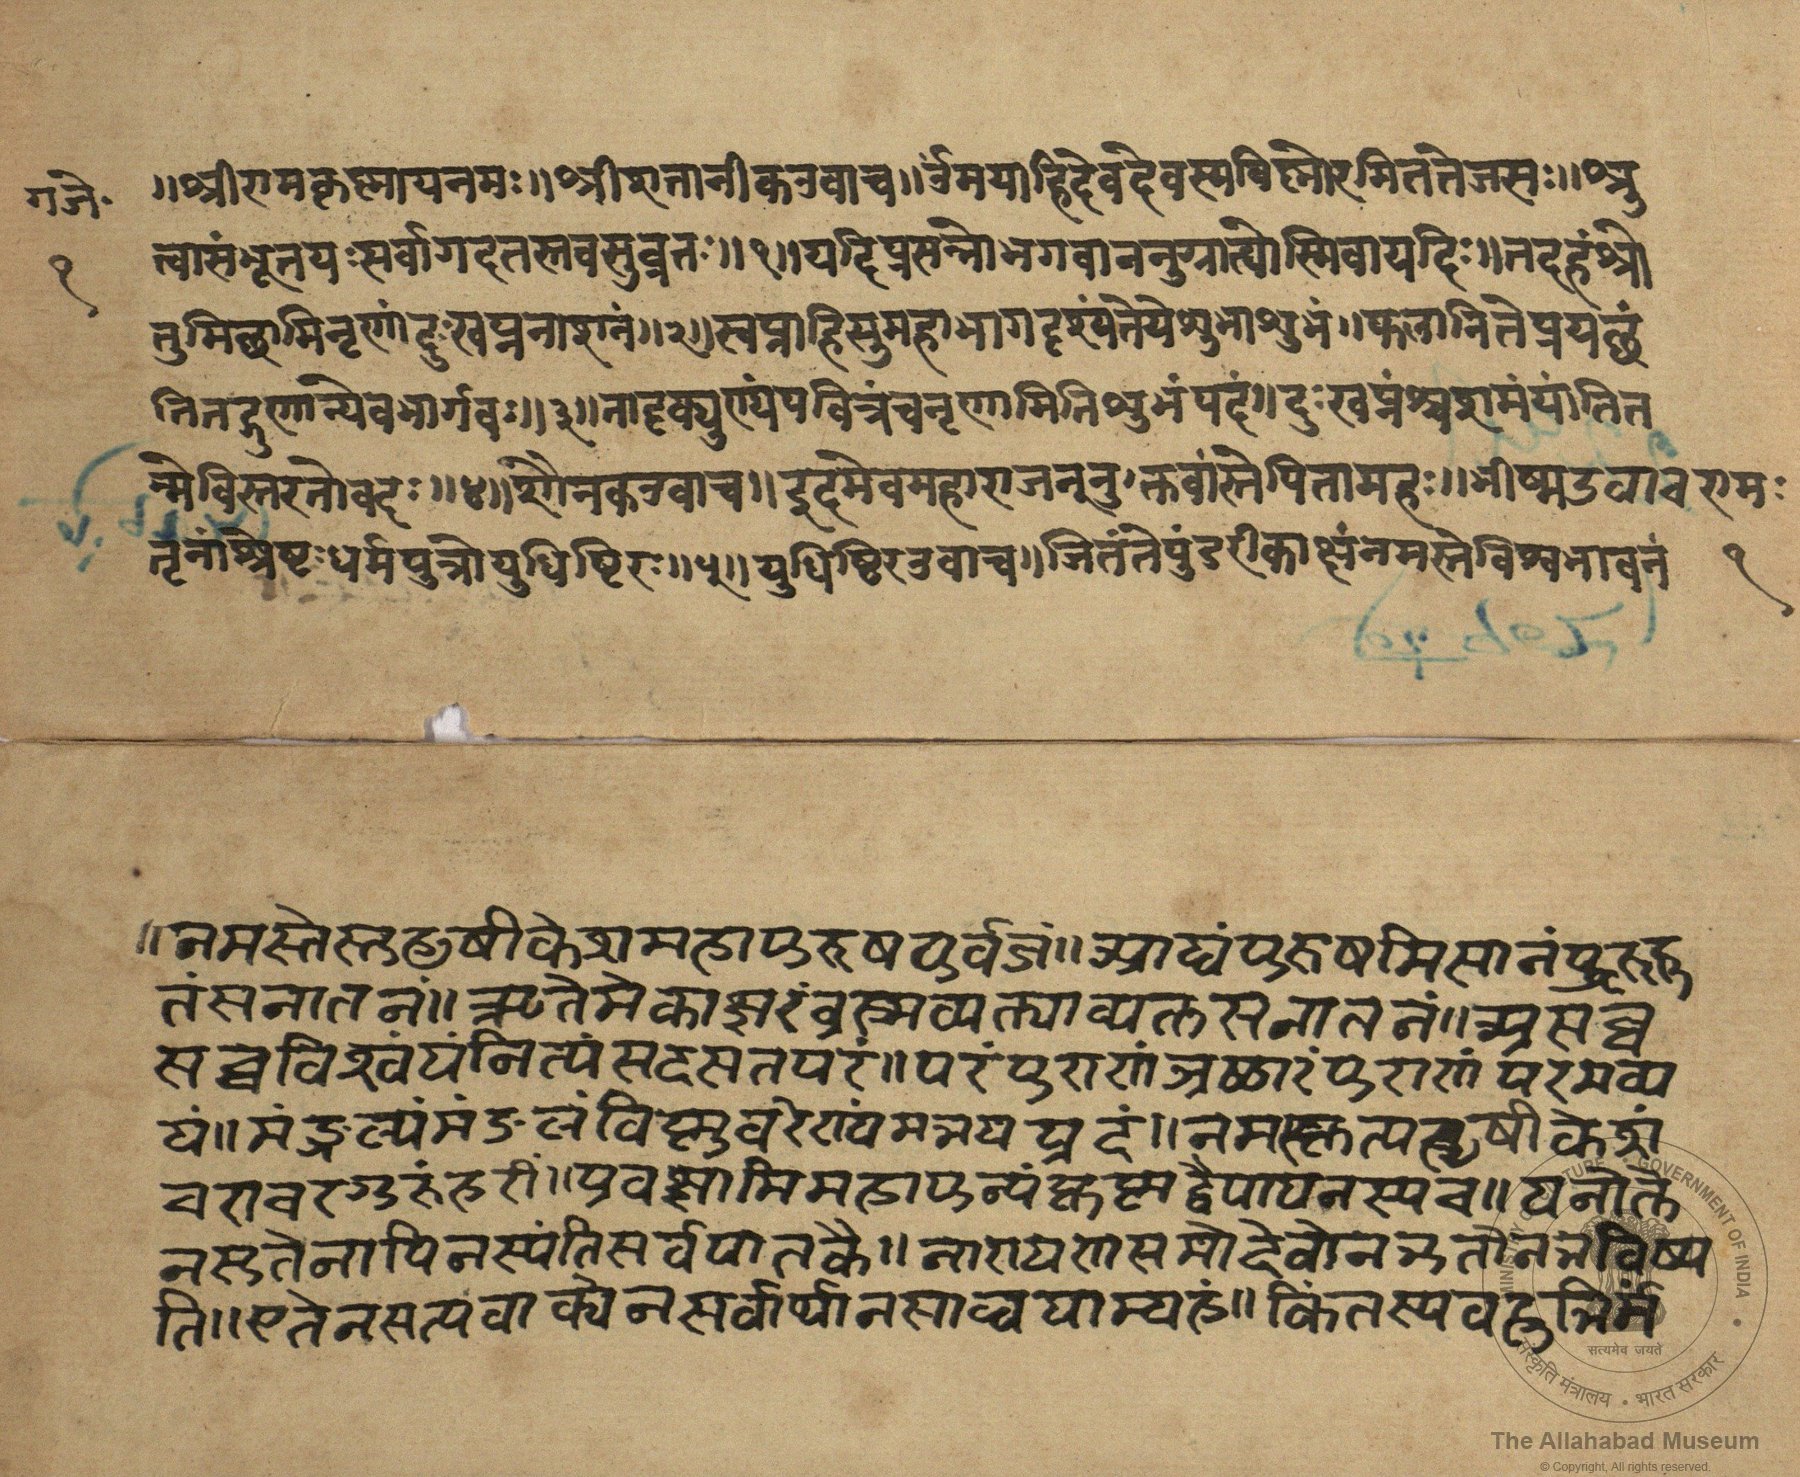 गजे॰
१
॥श्रीरामकृष्णायनमः॥श्रीशतानीकउवाच॥ॐमयाहिदेवदेवस्यविष्णोरमिततेजसः॥श्रु
त्वासंभूतयःसर्वागदतस्तवसुव्रतः॥१॥यदिप्रसन्नोभगवाननुग्राह्योस्मिवायदिः॥तदहंश्रो
तुमिछामिनृणांदुःखप्ननाशनं॥२॥स्वप्नाहिसुमहाभागदृश्यंतेयेशुभाशुभं॥फलानितेप्रयछं
तितद्गुणान्येवभार्गवः॥३॥तादृक्पुण्यंपवित्रंचनृणामितिशुभंपदं॥दुःखप्नंश्चशमंयांतित
न्मेविस्तरतोवदः॥४॥शौनकउवाच॥इदमेवमहाराजनूनुक्तवांस्तेपितामहः॥भीष्मउवाच रामः
तृनांश्रेष्टःधर्मपुत्रोयुधिष्टिरः॥५॥युधिष्टिरउवाच॥जितंतेपुंडरीकाक्षंनमस्तेविश्वभावनं
१
॥नमस्तेस्तुहृषीकेशमहापुरुषपुर्वजं॥आद्यंपुरुषमिसानंपुरूहू
तंसनातनं॥ऋतमेकाक्षरंब्रह्मव्यक्त्याव्यक्तसनातनं॥असच्च
सच्चविश्वंयंनित्यंसदसतपरं॥परंपुराणंस्रष्टारंपुराणंपरमव्य
यं॥मंङ्गल्यंमंङलंविष्णुवरेण्यंमभयप्रदं॥नमस्कृत्यहृषीकेशं
चराचरगुरुंहरीं॥प्रवक्ष्यामिमहापुन्यंकृष्णद्वैपायनस्यच॥येनोक्ते
नस्रुतेनापिनस्यंतिसर्वपातकै॥नारायणसमोदेवोनभुतोनभविष्य
ति॥एतेनसत्यवाक्येनसर्वार्थानसाध्वयाम्यहं॥किंतस्यवहुभिर्मं
सत्यमेव जयते
MINISTRY OF CULTURE • GOVERNMENT OF INDIA
संस्कृति मंत्रालय • भारत सरकार
The Allahabad Museum
© Copyright, All rights reserved.